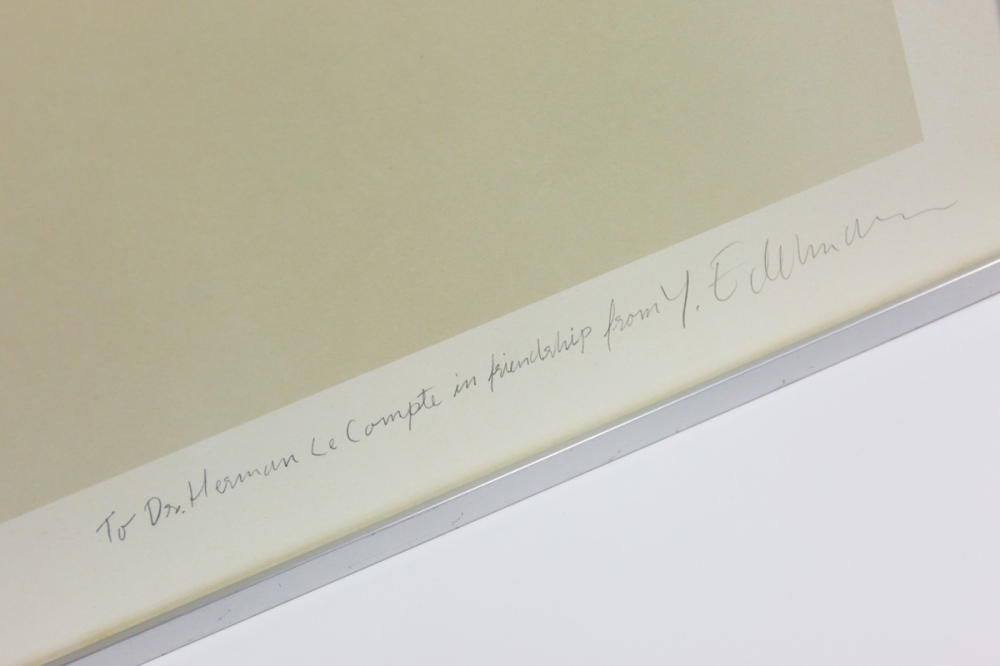 To Dr. Herman Le Compte in friendship from Y. Edelmann